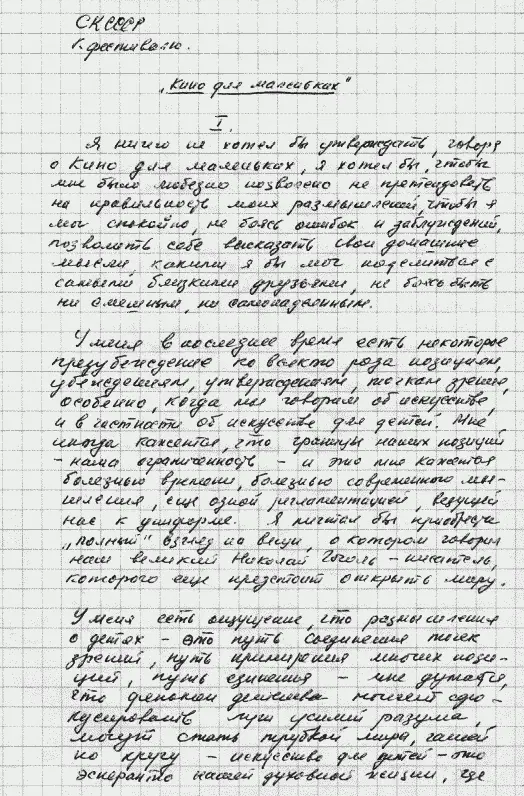 СК СССР
К фестивалю.
„Кино для маленьких"
I.
Я ничего не хотел бы утверждать, говоря
о Кино для маленьких, я хотел бы, чтобы
мне было любезно позволено не претендовать
на правильность моих размышлений, чтобы я
мог спокойно, не боясь ошибок и заблуждений,
позволить себе высказать свои домашние
мысли, какими я бы мог поделиться с
самыми близкими друзьями, не боясь быть
ни смешным, ни самонадеянным.
У меня в последнее время есть некоторое
предубеждение ко всякого рода позициям,
убеждениям, утверждениям, точкам зрения,
особенно, когда мы говорим об искусстве,
и в частности об искусстве для детей. Мне
иногда кажется, что границы наших позиций
– наша ограниченность – и это мне кажется
болезнью времени, болезнью современного мы-
шления, еще одной регламентацией, ведущей
нас к униформе. Я мечтал бы приобрести
„полный" взгляд на вещи, о котором говорил
наш великий Николай Гоголь – писатель,
которого еще предстоит открыть миру.
У меня есть ощущение, что размышления
о детях – это путь соединения точек
зрений, путь примирения многих пози-
ций, путь единенья – мне думается,
что феномен детства может сфо-
кусировать лучи усилий разума,
могут стать трубкой мира,
по кругу – искусство для детей – это
эсперанто нашей духовной жизни, где